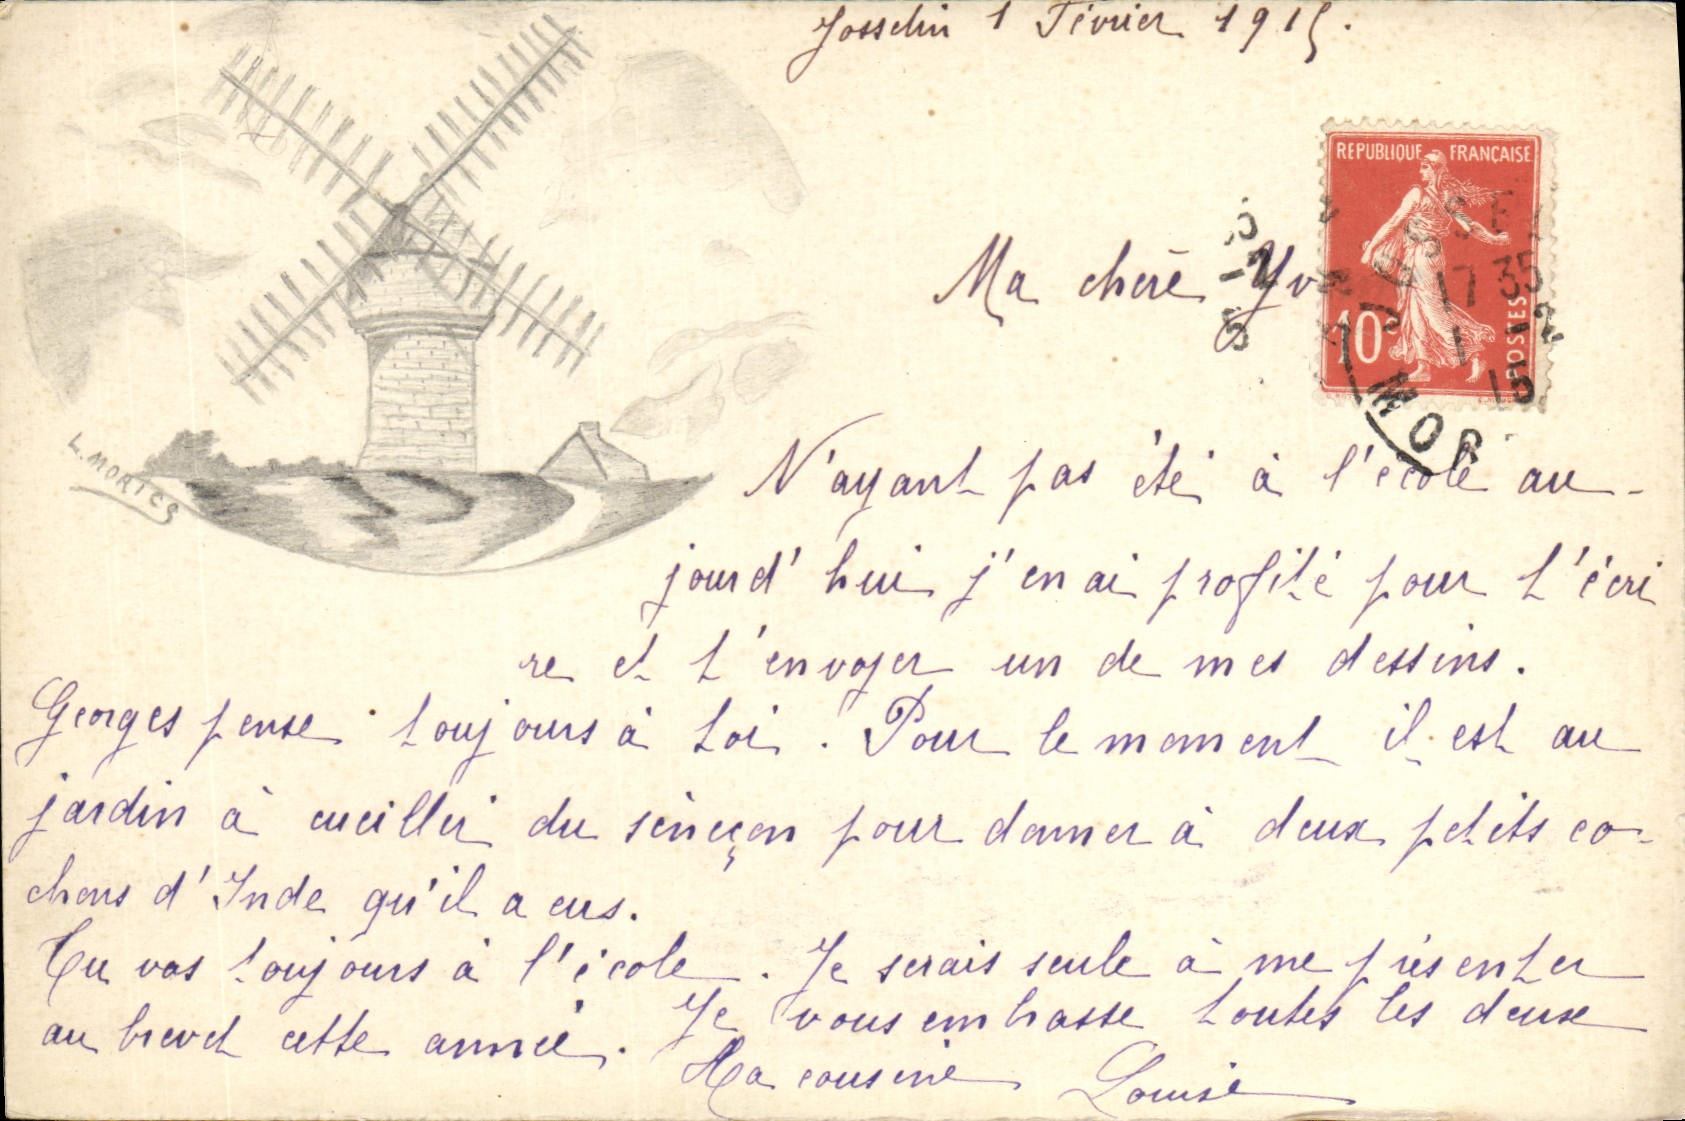 Josselin 1 Février 1915.
REPUBLIQUE FRANÇAISE
10c
POSTES
17 35
MOR
Ma chère Yv
L. MORICE
N'ayant pas été à l'école au-
jourd'hui j'en ai profité pour t'écri
re et t'envoyer un de mes dessins.
Georges pense toujours à toi. Pour le moment il est au
jardin à cueillir du sèneçon pour donner à deux petits co-
chons d'Inde qu'il a eus.
Tu vas toujours à l'école. Je serais seule à me présenter
au brevet cette année. Je vous embrasse toutes les deux
Ta cousine Louise